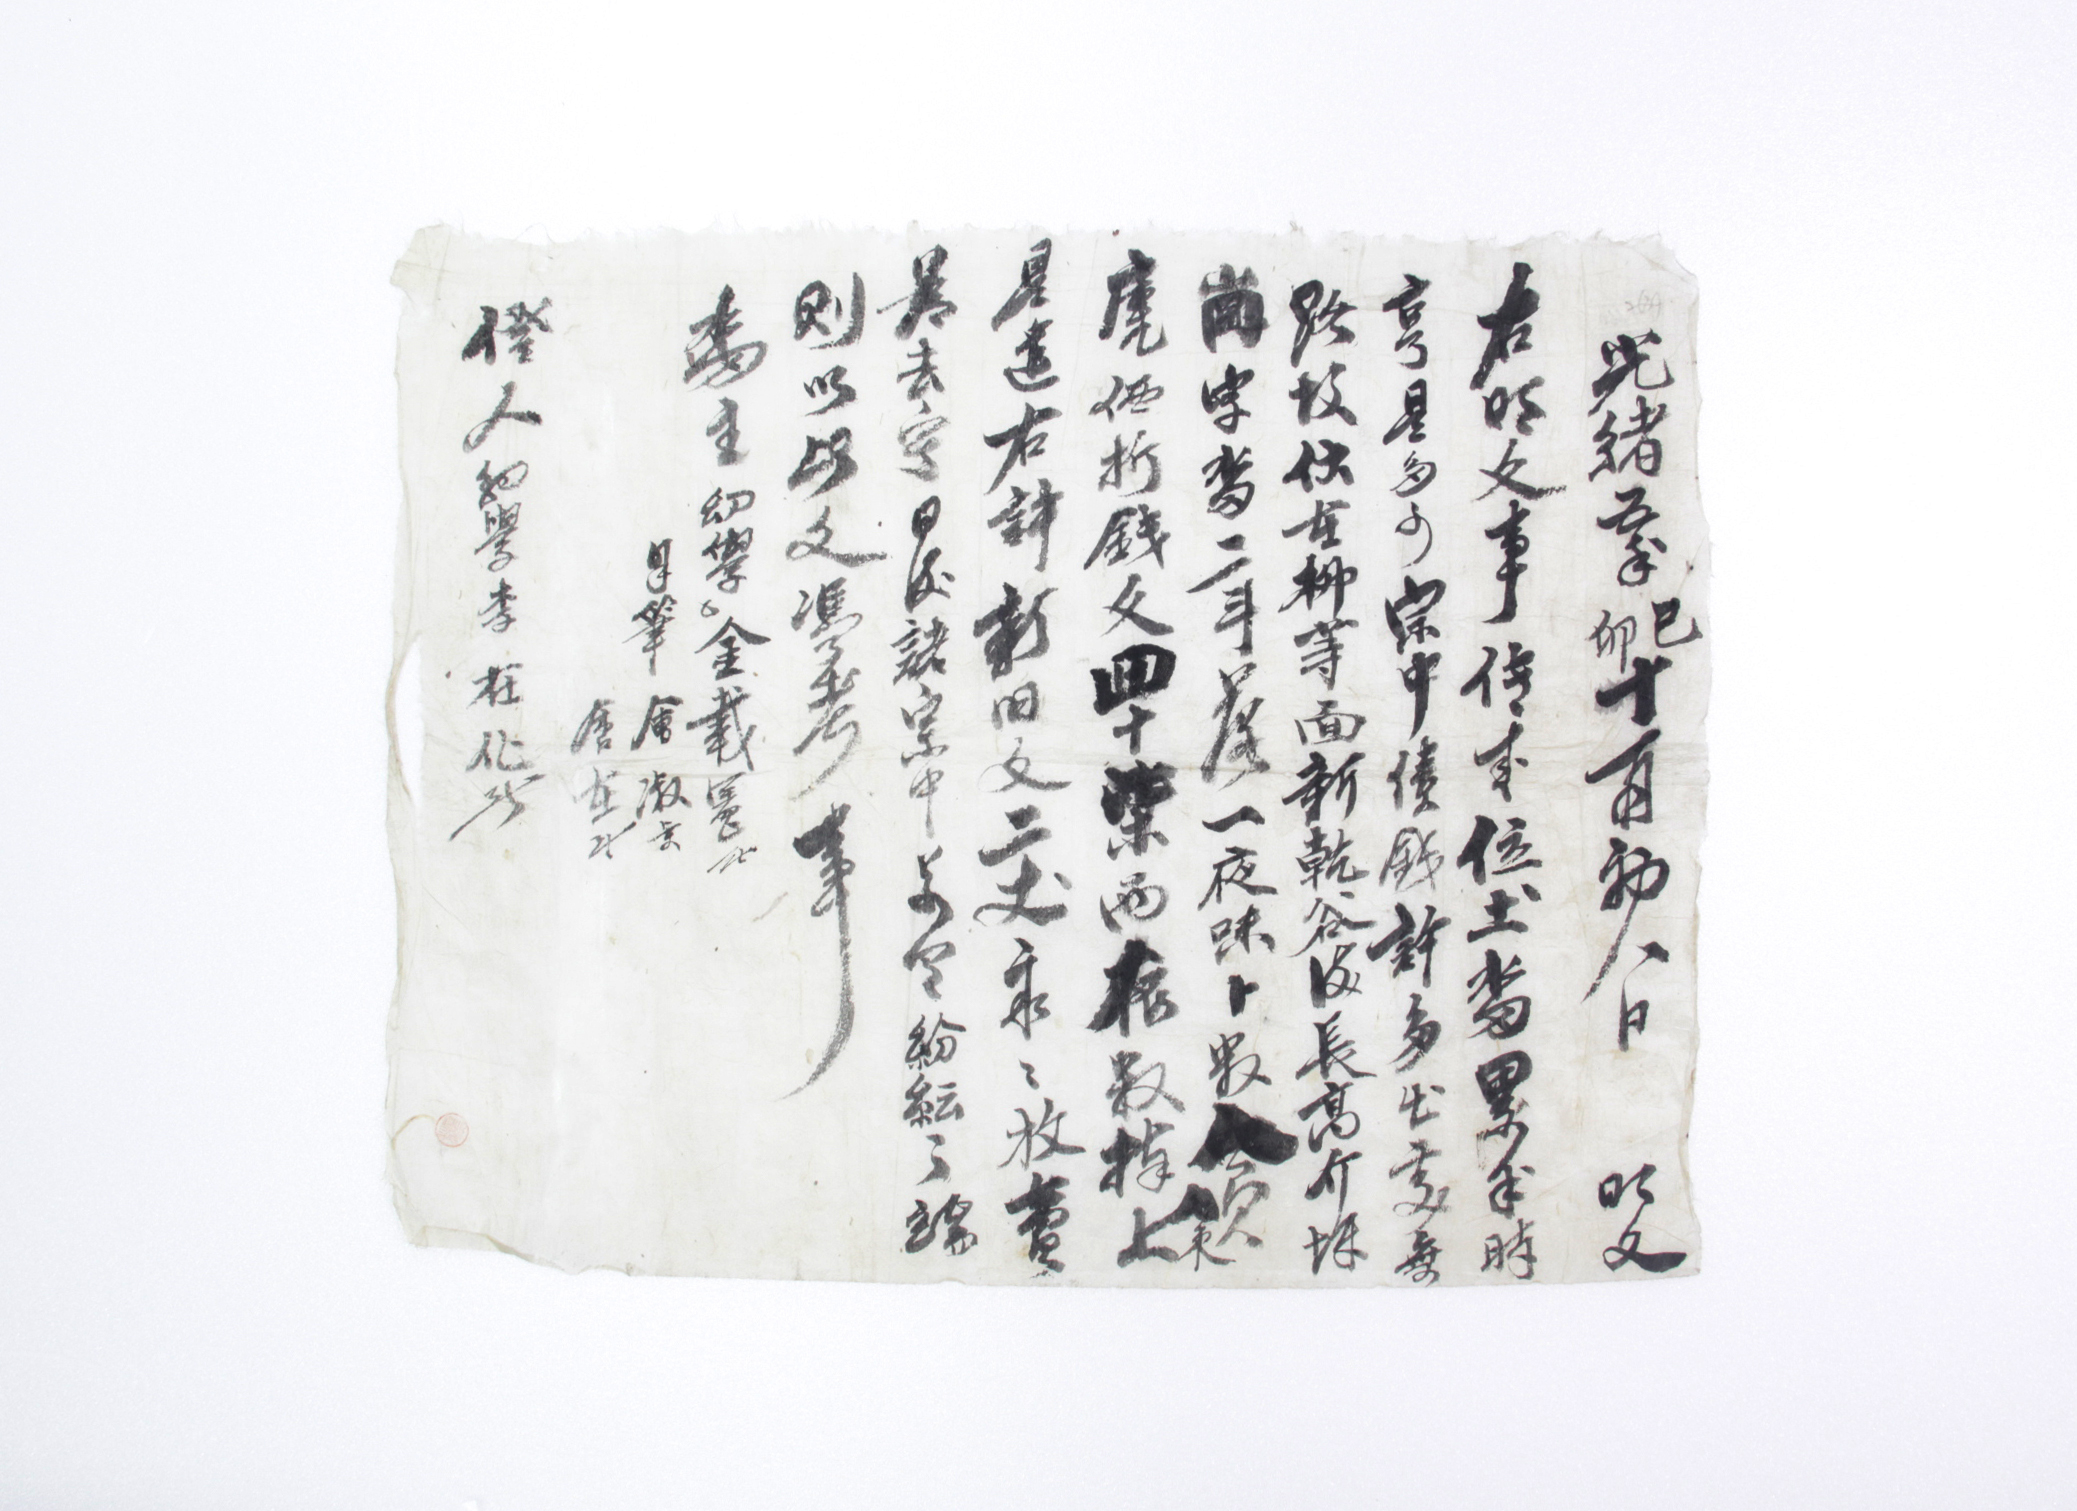 光緒五年己卯十一月初八日 明文
右明文事傳來位土畓累年時
享是多可宗中債錢許多出處無
路故伏在柳等面新乾谷後長高介坪
岗字畓二斗落一夜味卜數八負束
庫価折錢文四十柒兩依數捧上
是遣右許新旧文二丈永永放賣
是去乎日後諸宗中若有紛紜之端
則以此文憑考事
畓主 幼學 金載
自筆 金淑
金在
證人 幼學 李在化